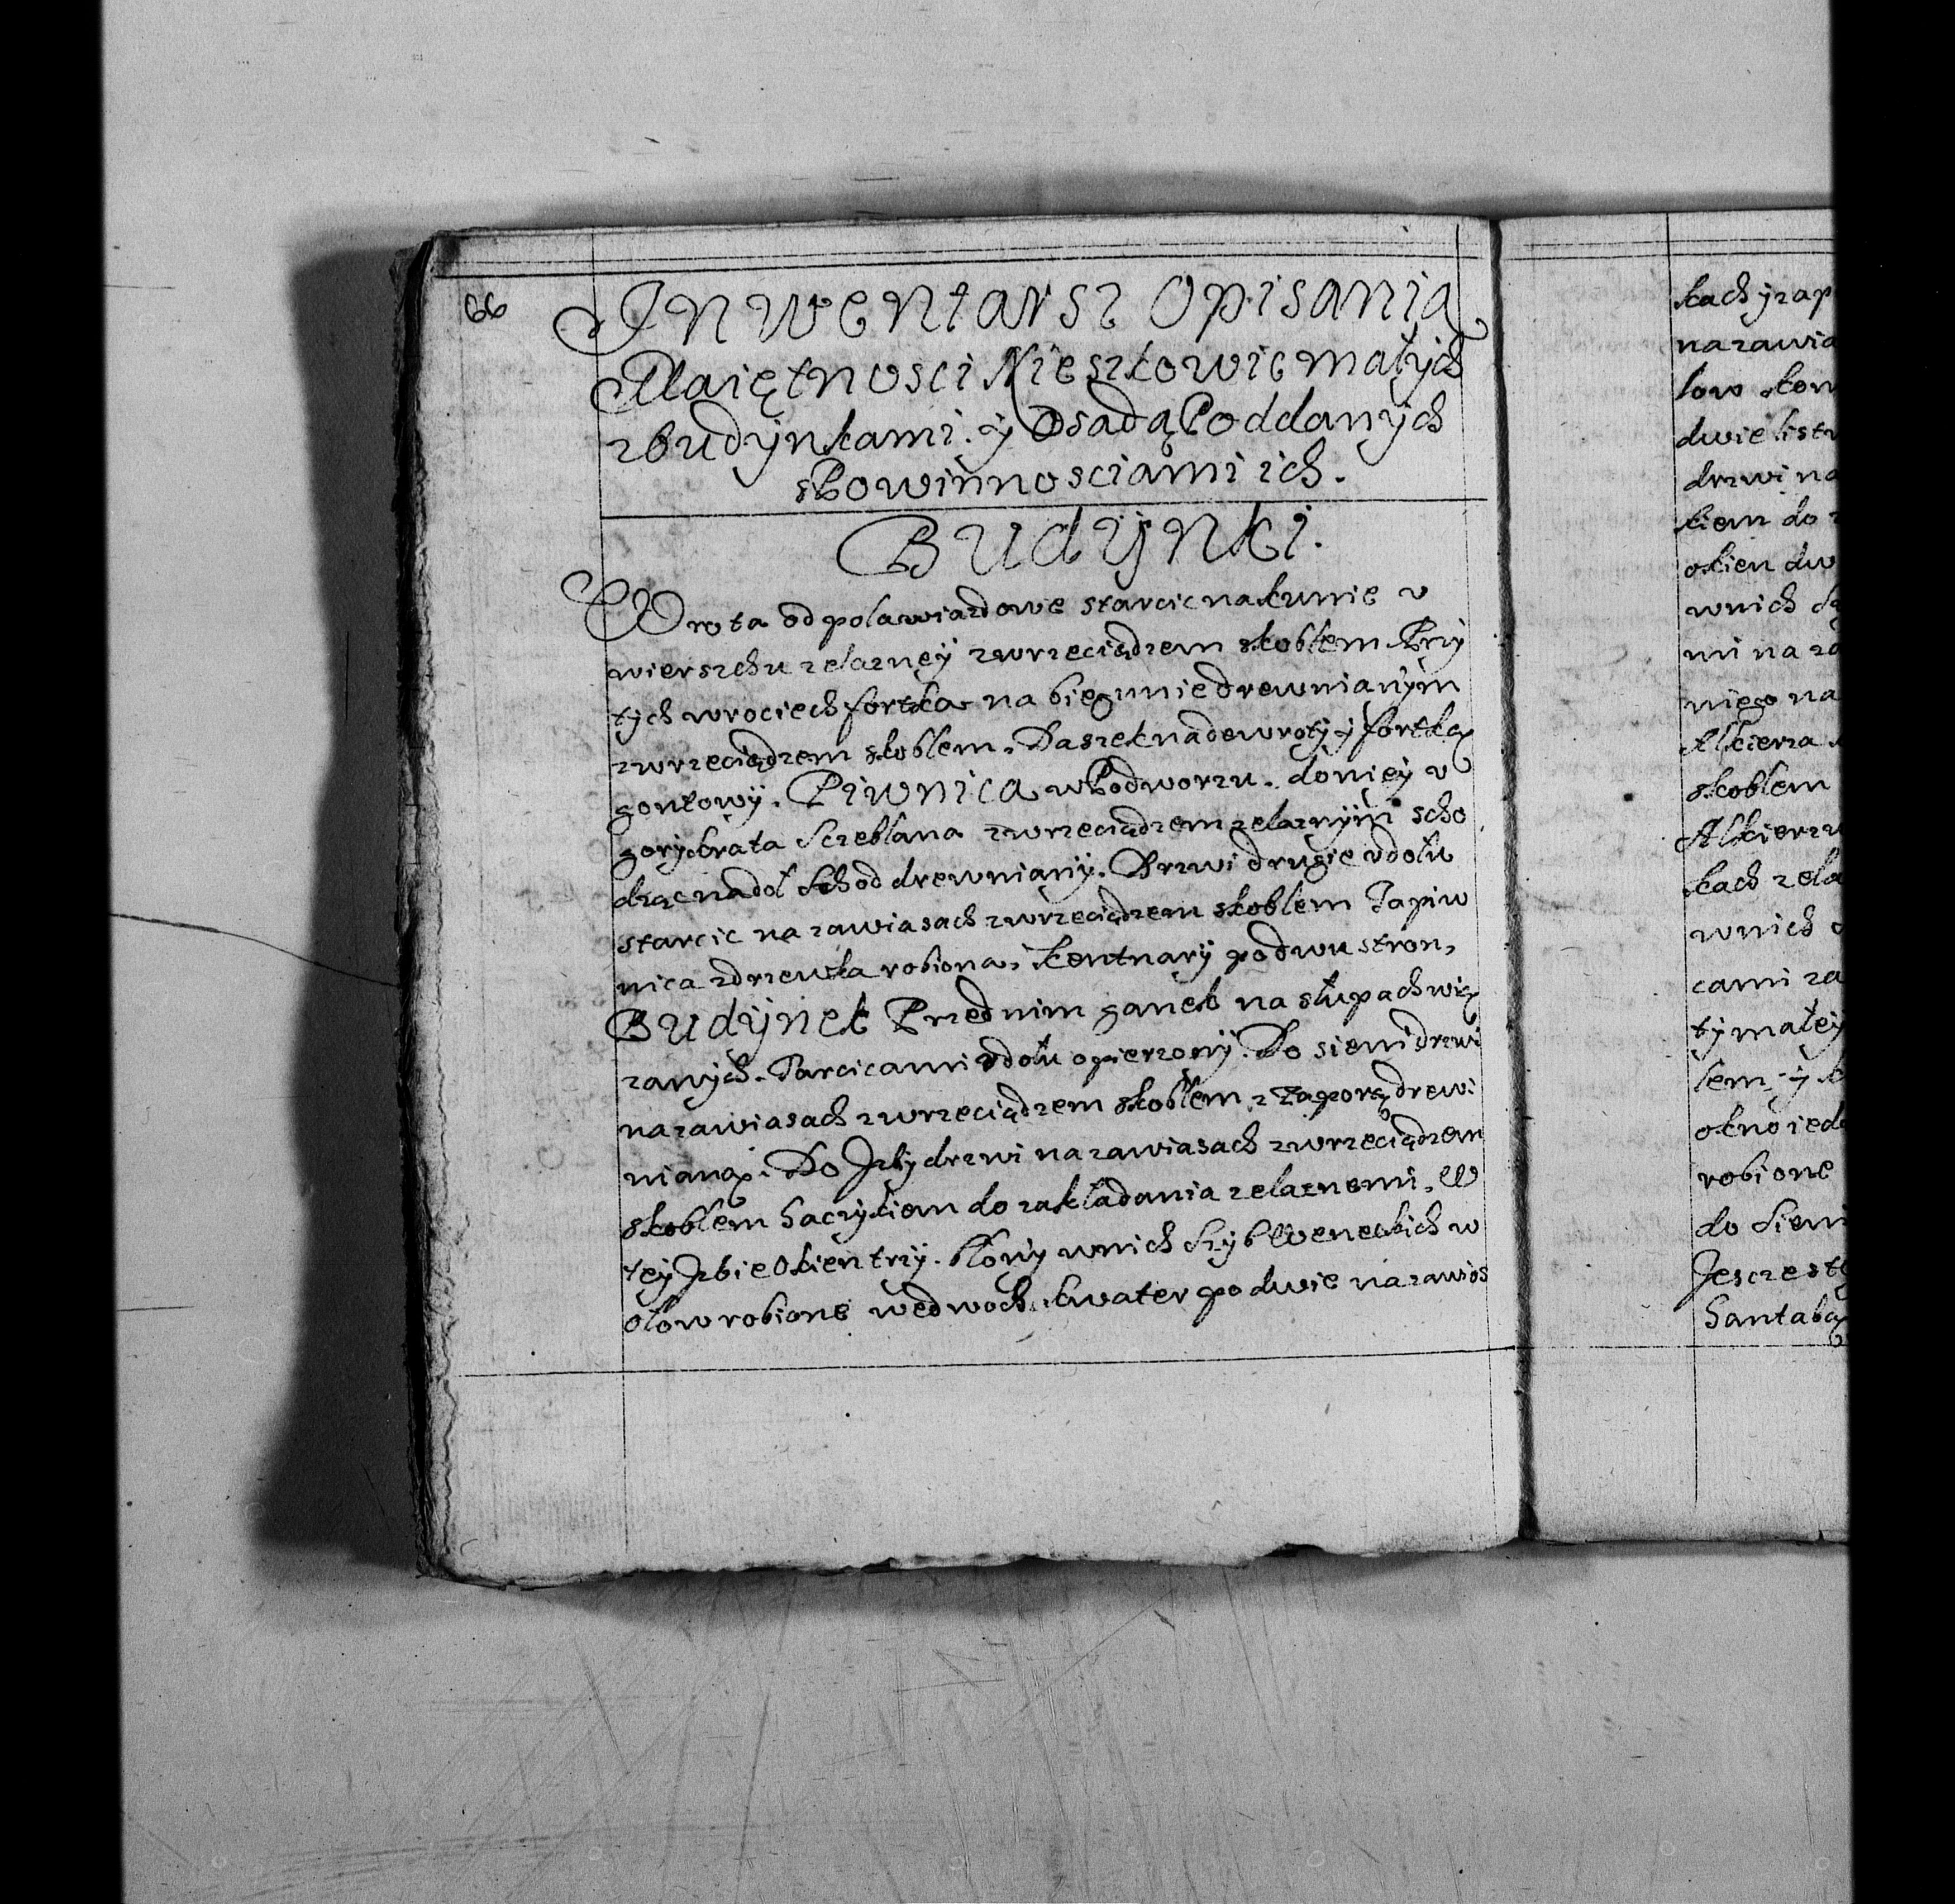 66
Inwentarsz Opisania
Maiętnosci Nieszkowic małych
z budynkami. y Osadą Poddanych
s Powinnosciami ich.
Budynki.
Wrota od pola wiazdowe z tarcic na kunie v
wierszchu zelazney z wrzeciądzem skoblem Przy
tych wrociech fortka na biegunie drewnianym
z wrzeciądzem skoblem. Daszek nadewroty y fortką
gontowy. Piwnica w Podworzu. do niey v
gory krata sczeblana z wrzeciądzem zelaznym scho
dząc nadoł schod drewniany. Drzwi drugie v dołu
z tarcic na zawiasach z wrzeciądzem skoblem Ta piw
nica z drzewka robiona, kentnary po dwu stron,
Budynek Przed nim ganek na słupach wią
zanych. Tarcicami v dołu opierzony. Do sieni drzwi
na zawiasach z wrzeciądzem skoblem, z zaporą drewi
nianą. Do Izby drzwi na zawiasach z wrzeciądzem
skoblem haczykiem do zakładania zelaznemi. W
tey Izbie Okien trzy. błony w nich szyb Weneckich w
ołow robione we dwoch kwater po dwie na zawias
kach y zap
na zawia
low kow
dwie listw
drzwi na
kiem do z
okien dw
w nich
mi na za
niego na
Alkierza
skoblem
Alkierzu
kach zela
w nich
cami za
ty małey
lem, y
okno ied
robione
do sieni
Jescze st
hantabą